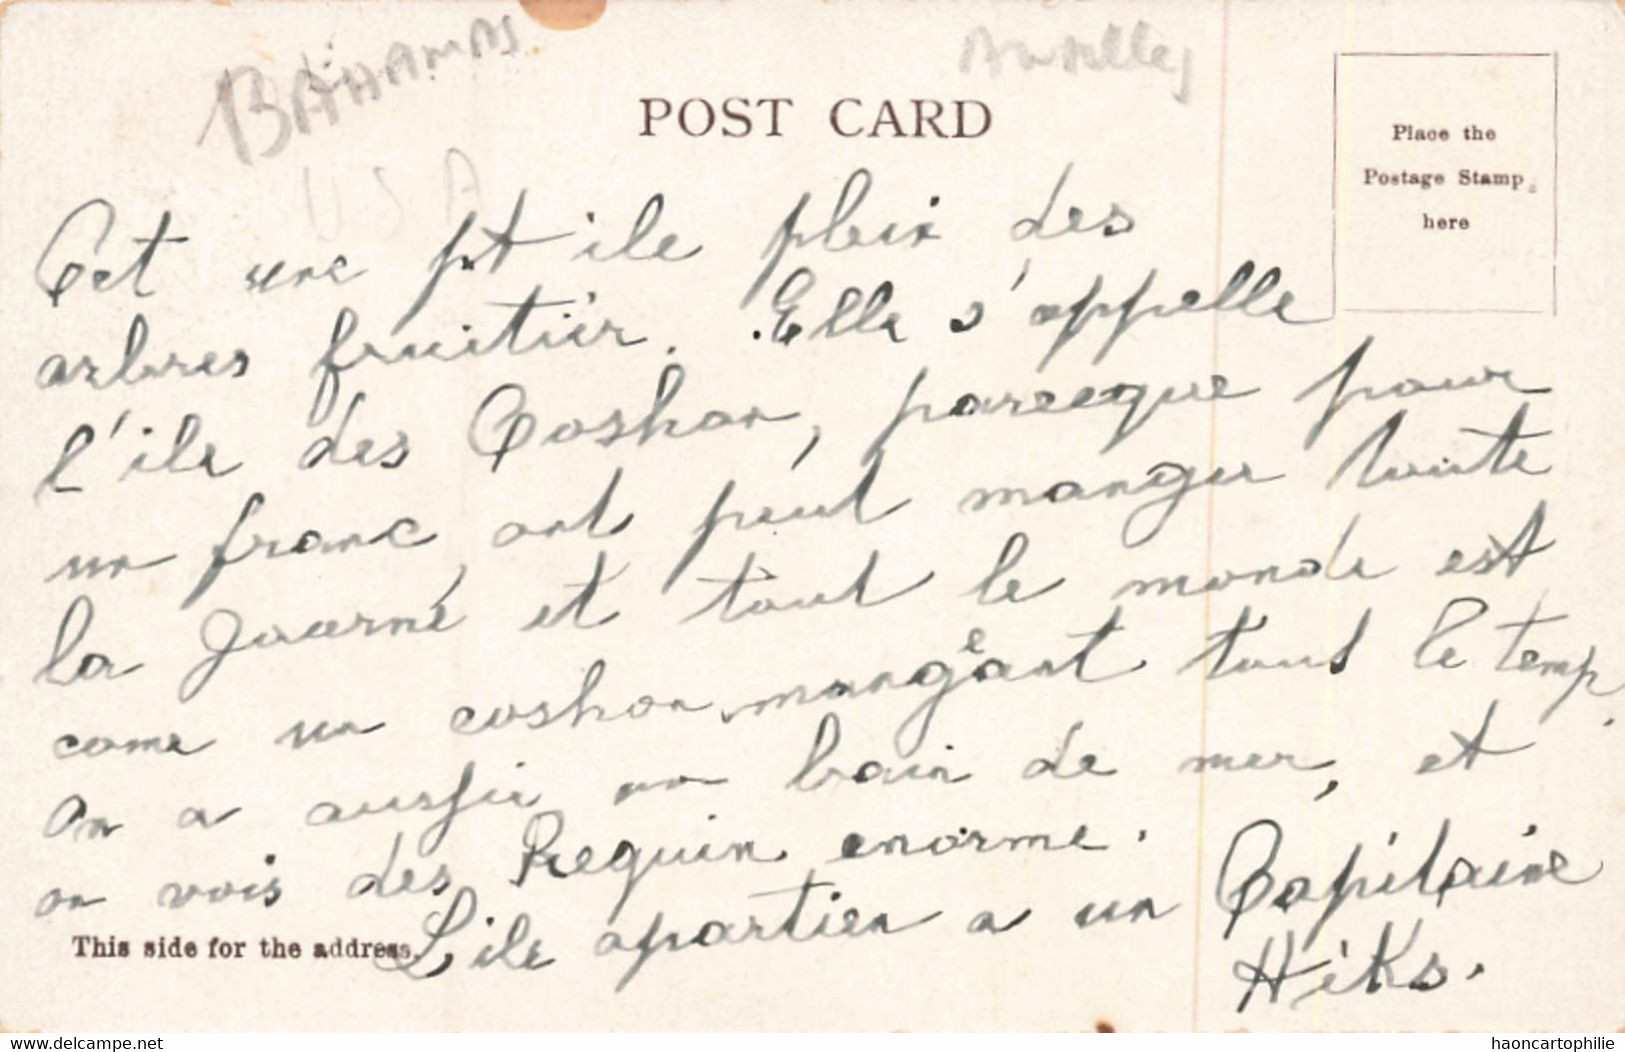 BAHAMAS
Antilles
USA
POST CARD
Place the
Postage Stamp
here
Cet une pt ile plein des
arbres fruitier. Elle s'appelle
l'ile des Coshon, parceque pour
un franc ont peut manger toute
la journé et tout le monde est
come un coshon mangeant tout le temp.
On a aussi un bain de mer, et
on vois des Requin enorme.
L'ile apartien a un Capitaine
Hiks.
This side for the address.
www.delcampe.net
haoncartophilie